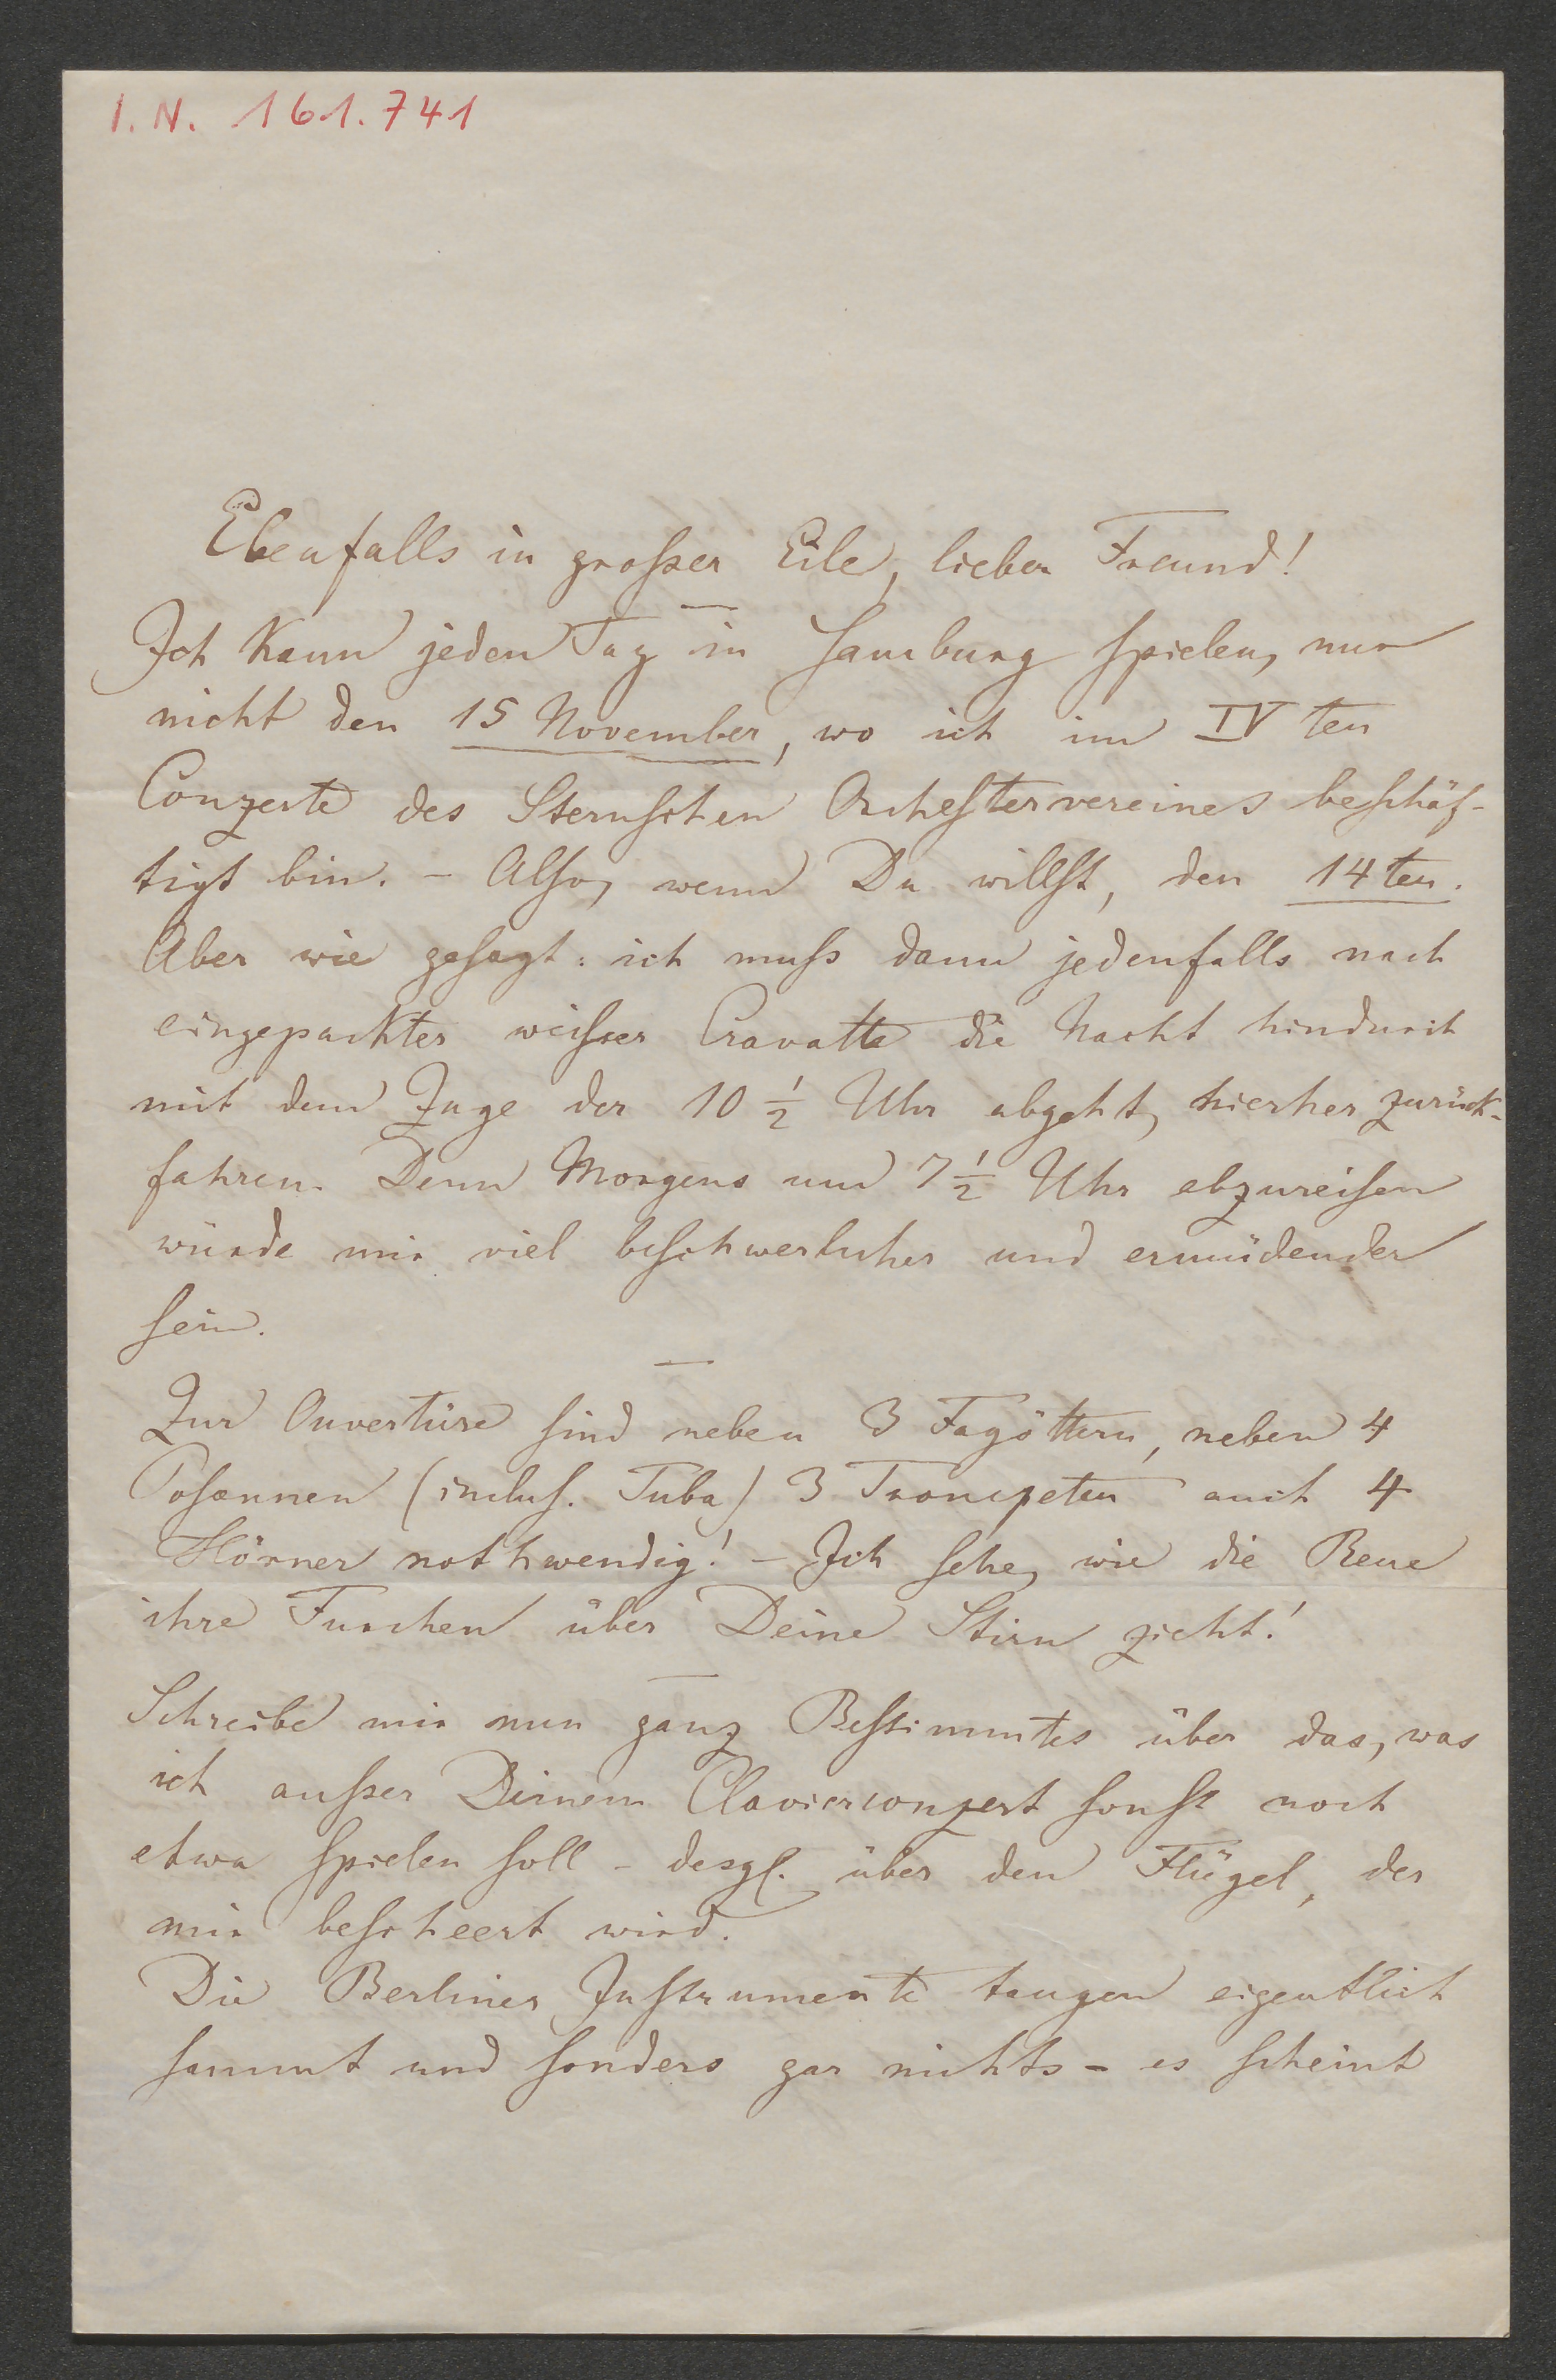 I.N. 161.741
Ebenfalls in großer Eile, lieber Freund!
Ich kann jeden Tag in Hamburg spielen, nur
nicht den 15 November, wo ich im IV ten
Conzerte des Sternschen Orchestervereines beschäf-
tigt bin. – Also, wenn Du willst, den 14ten.
Aber wie gesagt: ich muß dann jedenfalls nach
eingepackter weißer Cravatte die Nacht hindurch
mit dem Zuge der 10 ½ Uhr abgeht, hierher zurück-
fahren. Denn Morgens um 7 ½ Uhr abzureisen
würde mir viel beschwerlicher und ermüdender
sein.
Zur Ouvertüre sind neben 3 Fagöttern, neben 4
Posaunen (inclus. Tuba) 3 Trompeten auch 4
Hörner nothwendig! – Ich sehe, wie die Reue
ihre Furchen über Deine Stirn zieht!
Schreibe mir nun ganz Bestimmtes über das, was
ich außer Deinem Clavierconzert sonst noch
etwa spielen soll – desgl. über den Flügel, der
mir bescheert wird.
Die Berliner Instrumente taugen eigentlich
sammt und sonders gar nichts – es scheint